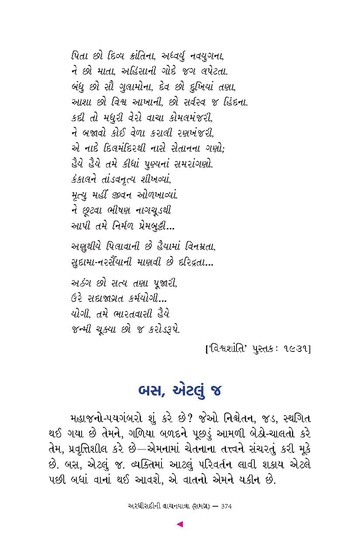 પિતા છો દિવ્ય ક્રાંતિના, અધ્વર્યુ નવયુગના,
ને છો માતા, અહિંસાની ગોદે જગ લપેટતા.
બંધુ છો સૌ ગુલામોના, દેવ છો દુખિયાં તણા,
આશા છો વિશ્વ આખાની, છો સર્વસ્વ જ હિંદના.
કદી તો મધુરી વેરો વાચા કોમલમંજરી,
ને બજાવો કોઈ વેળા કરાલી રણખંજરી,
એ નાદે દિલમંદિરથી નાસે સેતાનના ગણો;
હૈયે હૈયે તમે કીધાં પુણ્યનાં સમરાંગણો.
કંકાલને તાંડવનૃત્ય શીખવ્યાં,
મૃત્યુ મહીં જીવન ઓળખાવ્યાં.
ને છૂટવા ભીષણ નાગચૂડથી
આપી તમે નિર્મળ પ્રેમબુટ્ટી...
અણુથીયે પિલાવાની છે હૈયામાં વિનમ્રતા,
સુદામા-નરસૈંયાની માણવી છે દરિદ્રતા...
અઠંગ છો સત્ય તણા પૂજારી,
ઉરે સદાજાગ્રત કર્મયોગી...
યોગી, તમે ભારતવાસી હૈયે
જન્મી ચૂક્યા છો જ કરોડરૂપે.
['વિશ્વશાંતિ' પુસ્તક: ૧૯૩૧]
બસ, એટલું જ
મહાજનો-પયગંબરો શું કરે છે? જેઓ નિશ્ચેતન, જડ, સ્થગિત
થઈ ગયા છે તેમને, ગળિયા બળદને પૂછડું આમળી બેઠો-ચાલતો કરે
તેમ, પ્રવૃત્તિશીલ કરે છે—એમનામાં ચેતનાના તત્ત્વને સંચરતું કરી મૂકે
છે. બસ, એટલું જ. વ્યક્તિમાં આટલું પરિવર્તન લાવી શકાય એટલે
પછી બધાં વાનાં થઈ આવશે, એ વાતનો એમને યકીન છે.
અરધીસદીની વાચનયાત્રા (સમગ્ર) — 374